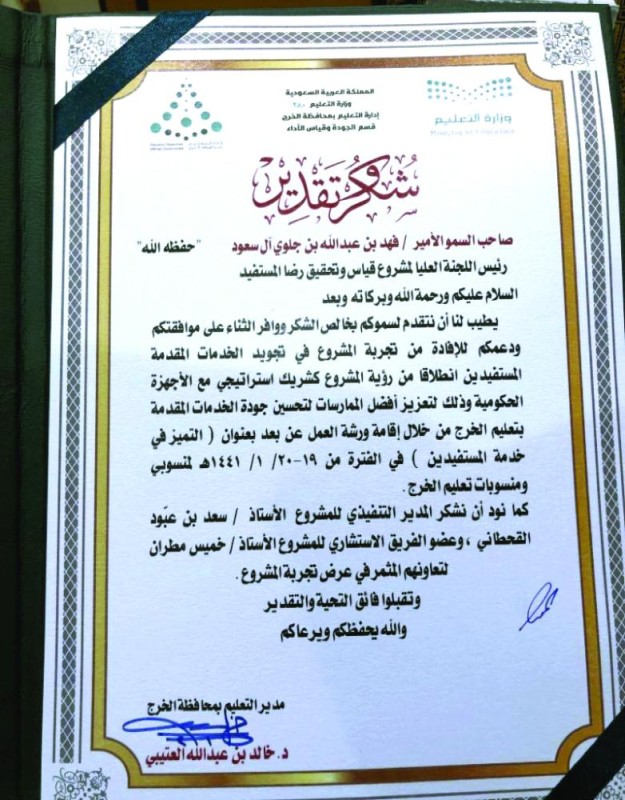 المملكة العربية السعودية
وزارة التعليم ٢٨٠
إدارة التعليم بمحافظة الخرج
قسم الجودة وقياس الأداء
وزارة التعليم
Ministry of Education
شكر وتقدير
صاحب السمو الأمير / فهد بن عبدالله بن جلوي آل سعود "حفظه الله"
رئيس اللجنة العليا لمشروع قياس وتحقيق رضا المستفيد
السلام عليكم ورحمة الله وبركاته وبعد
يطيب لنا أن نتقدم لسموكم بخالص الشكر ووافر الثناء على موافقتكم
ودعمكم للإفادة من تجربة المشروع في تجويد الخدمات المقدمة
المستفيدين انطلاقا من رؤية المشروع كشريك استراتيجي مع الأجهزة
الحكومية وذلك لتعزيز أفضل الممارسات لتحسين جودة الخدمات المقدمة
بتعليم الخرج من خلال إقامة ورشة العمل عن بعد بعنوان ( التميز في
خدمة المستفيدين ) في الفترة من ١٩-٢٠/ ١/ ١٤٤١هـ لمنسوبي
ومنسوبات تعليم الخرج.
كما نود أن نشكر المدير التنفيذي للمشروع الأستاذ / سعد بن عبّود
القحطاني ، وعضو الفريق الاستشاري للمشروع الأستاذ / خميس مطران
لتعاونهم المثمر في عرض تجربة المشروع .
وتقبلوا فائق التحية والتقدير
والله يحفظكم ويرعاكم
مدير التعليم بمحافظة الخرج
د. خالد بن عبدالله العتيبي